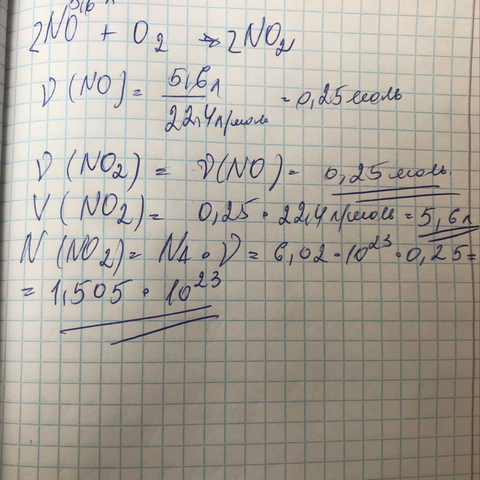 5,6 л
2NO + O₂ → 2NO₂
ν(NO) = 5,6л / 22,4 л/моль = 0,25 моль
ν(NO₂) = ν(NO) = 0,25 моль.
V(NO₂) = 0,25 · 22,4 л/моль = 5,6 л
N(NO₂) = NA · ν = 6,02 · 10²³ · 0,25 =
= 1,505 · 10²³